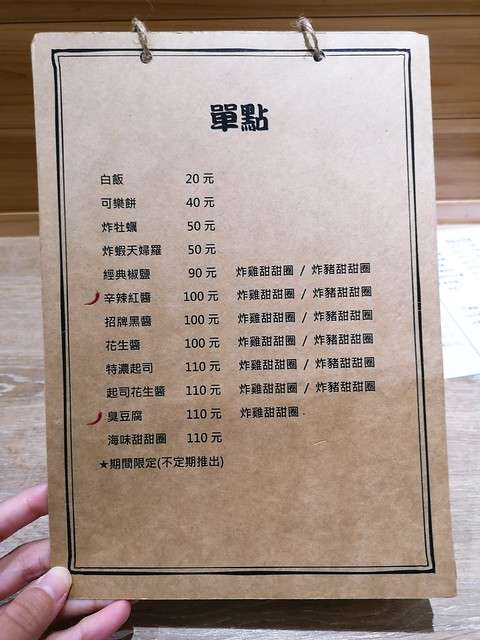 單點
白飯 20 元
可樂餅 40 元
炸牡蠣 50 元
炸蝦天婦羅 50 元
經典椒鹽 90 元 炸雞甜甜圈 / 炸豬甜甜圈
辛辣紅醬 100 元 炸雞甜甜圈 / 炸豬甜甜圈
招牌黑醬 100 元 炸雞甜甜圈 / 炸豬甜甜圈
花生醬 100 元 炸雞甜甜圈 / 炸豬甜甜圈
特濃起司 110 元 炸雞甜甜圈 / 炸豬甜甜圈
起司花生醬 110 元 炸雞甜甜圈 / 炸豬甜甜圈
臭豆腐 110 元 炸雞甜甜圈
海味甜甜圈 110 元
★期間限定(不定期推出)